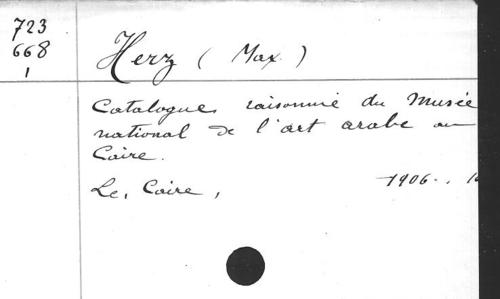 723
668
1
Herz (Max.)
Catalogue raisonnié du Musée
national de l'art arabe au
Caire.
Le, Caire, 1906.,